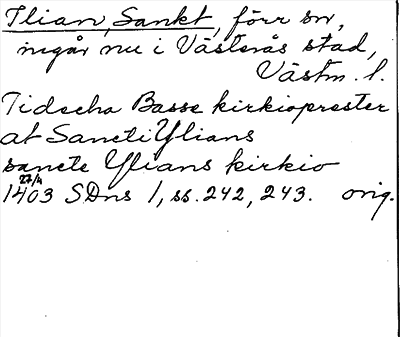 Ilian, Sankt, förr sn,
ingår nu i Västerås stad,
Västm. l.
Tidecha Basse kirkioprester
at Sancti Ylians
sancte Ylians kirkio
27/4
1403 SDns 1, ss. 242, 243. orig.